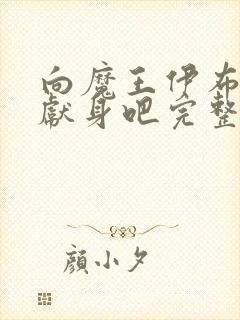 向魔王伊布
献身吧完整
顏小夕